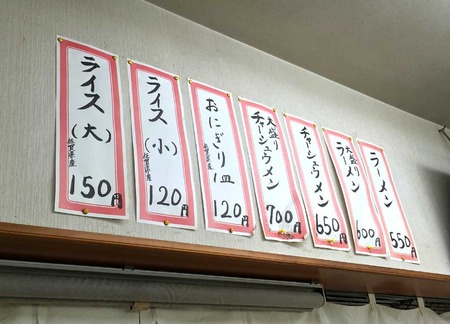 ラーメン
550円
大盛り
ラーメン
600円
チャーシュウメン
650円
大盛り
チャーシュウメン
700円
おにぎり1皿
佐賀県産
120円
ライス(小)
佐賀県産
120円
ライス(大)
佐賀県産
150円